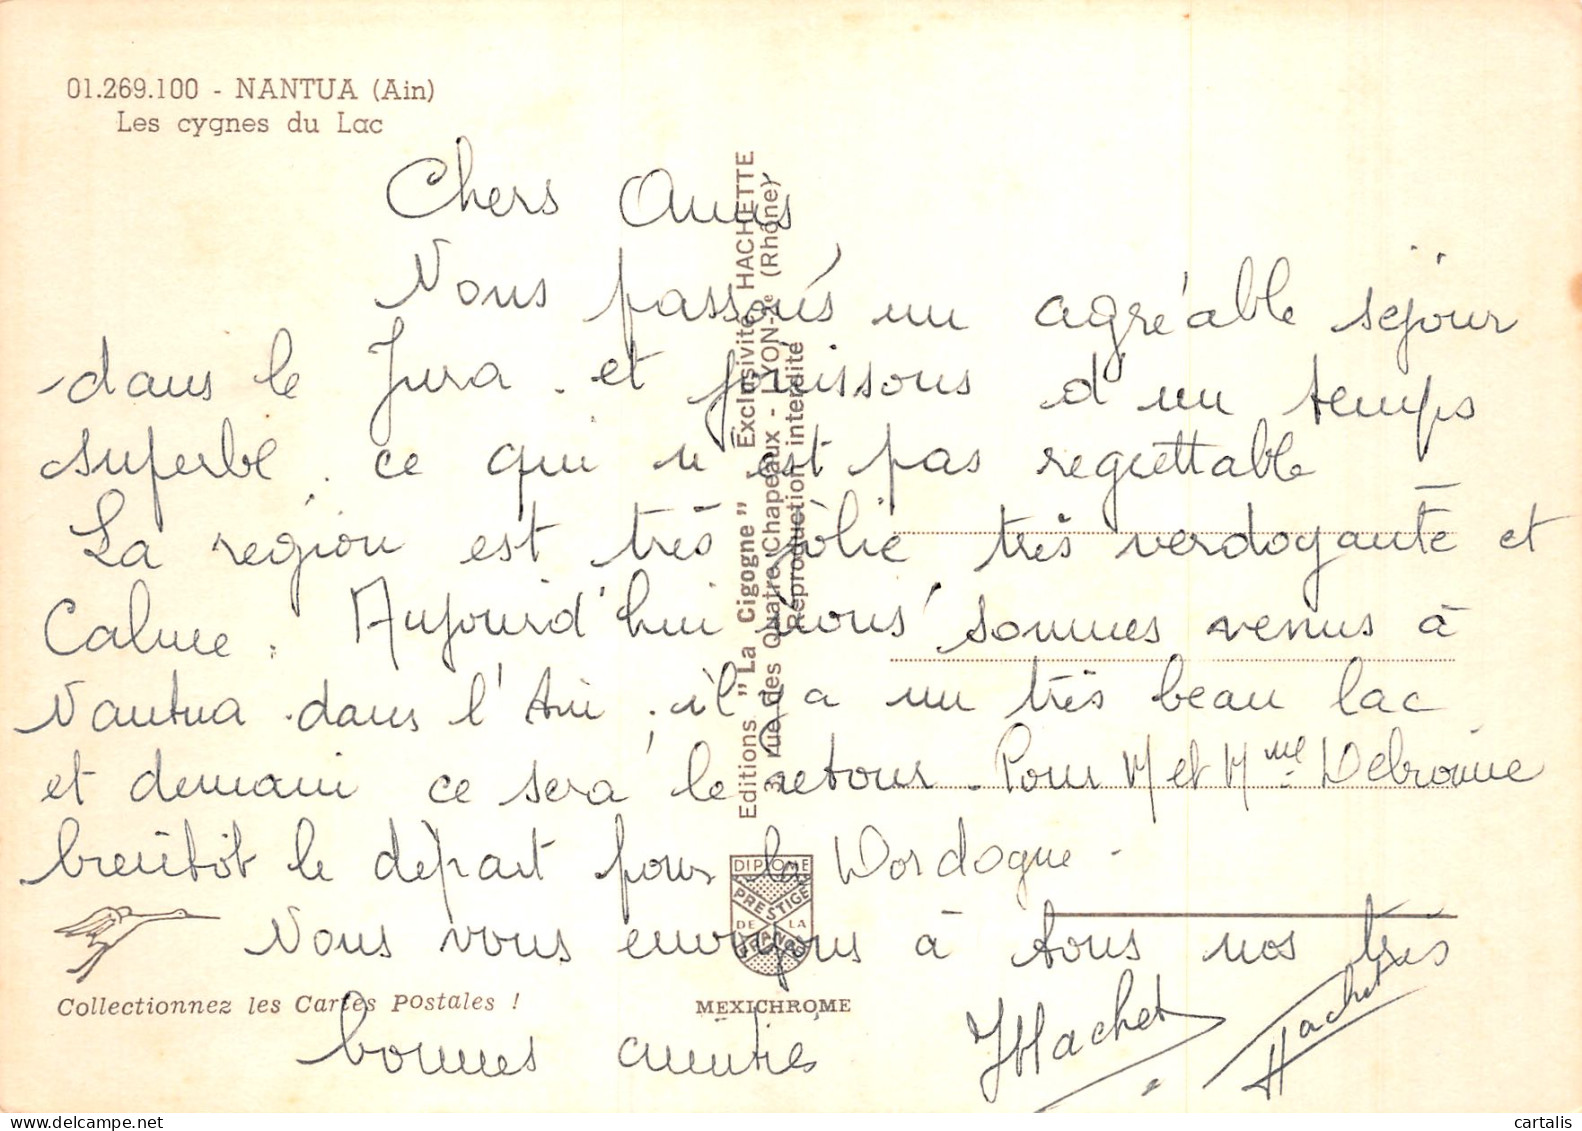 01.269.100 - NANTUA (Ain)
Les cygnes du Lac
Chers Amis
Nous passons un agréable séjour
dans le Jura. et jouissons d'un temps
superbe. ce qui n'est pas regrettable
La région est très jolie très verdoyante et
Calme. Aujourd'hui nous sommes venus à
Nantua. dans l'Ain. il y a un très beau lac
et demain ce sera le retour. Pour M et Mme
bientôt le départ pour la Dordogne -
Nous vous envoyons à tous nos très
bonnes amitiés
JHachet
Hachet
Editions "La Cigogne" Exclusivité HACHETTE
3, rue des Quatre Chapeaux - LYON-2e (Rhône)
Reproduction interdite
DIPLOME
PRESTIGE
DE LA
FRANCE
Collectionnez les Cartes Postales !
MEXICHROME
cartalis